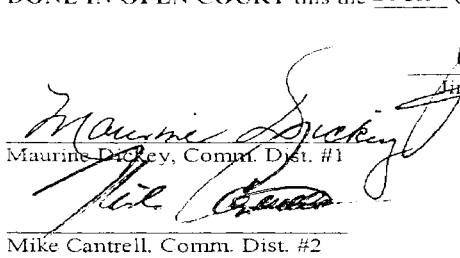 DONE IN OPEN COURT this the
Maurine Dickey
Maurine Dickey, Comm. Dist. #1
Mike Cantrell, Comm. Dist. #2